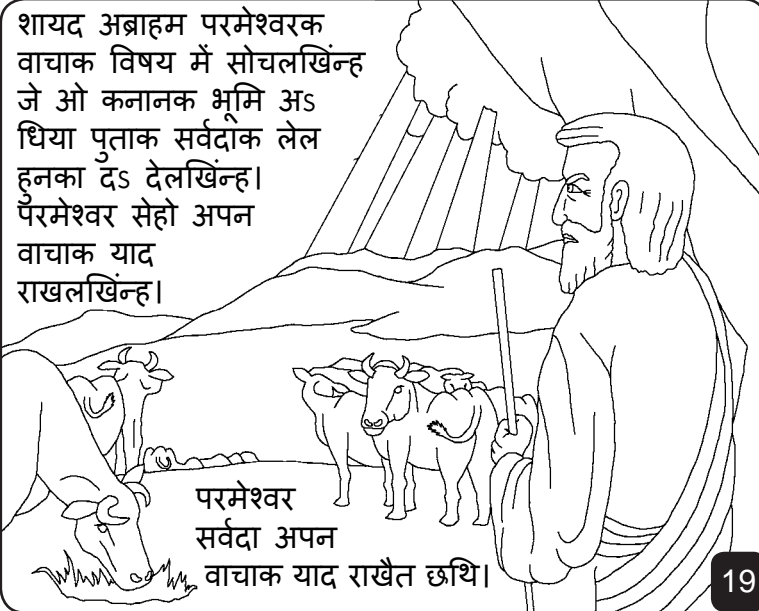 शायद अब्राहम परमेश्वरक
वाचाक विषय में सोचलखिन्ह
जे ओ कनानक भूमि अऽ
धिया पुताक सर्वदाक लेल
हुनका दऽ देलखिन्ह।
परमेश्वर सेहो अपन
वाचाक याद
राखलखिन्ह।
परमेश्वर
सर्वदा अपन
वाचाक याद राखैत छथि।
19